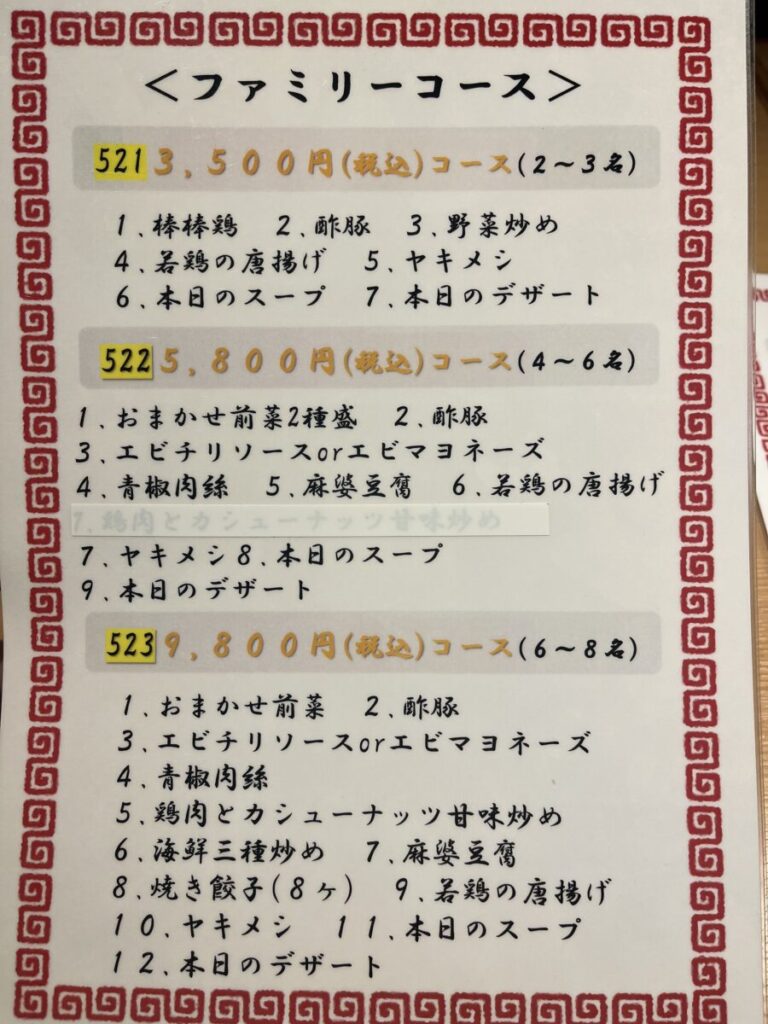 ＜ファミリーコース＞
521 3,500円(税込)コース(2～3名)
1.棒棒鶏 2.酢豚 3.野菜炒め
4.若鶏の唐揚げ 5.ヤキメシ
6.本日のスープ 7.本日のデザート
522 5,800円(税込)コース(4～6名)
1.おまかせ前菜2種盛 2.酢豚
3.エビチリソースorエビマヨネーズ
4.青椒肉絲 5.麻婆豆腐 6.若鶏の唐揚げ
7.鶏肉とカシューナッツ甘味炒め
7.ヤキメシ8.本日のスープ
9.本日のデザート
523 9,800円(税込)コース(6～8名)
1.おまかせ前菜 2.酢豚
3.エビチリソースorエビマヨネーズ
4.青椒肉絲
5.鶏肉とカシューナッツ甘味炒め
6.海鮮三種炒め 7.麻婆豆腐
8.焼き餃子(8ヶ) 9.若鶏の唐揚げ
10.ヤキメシ 11.本日のスープ
12.本日のデザート